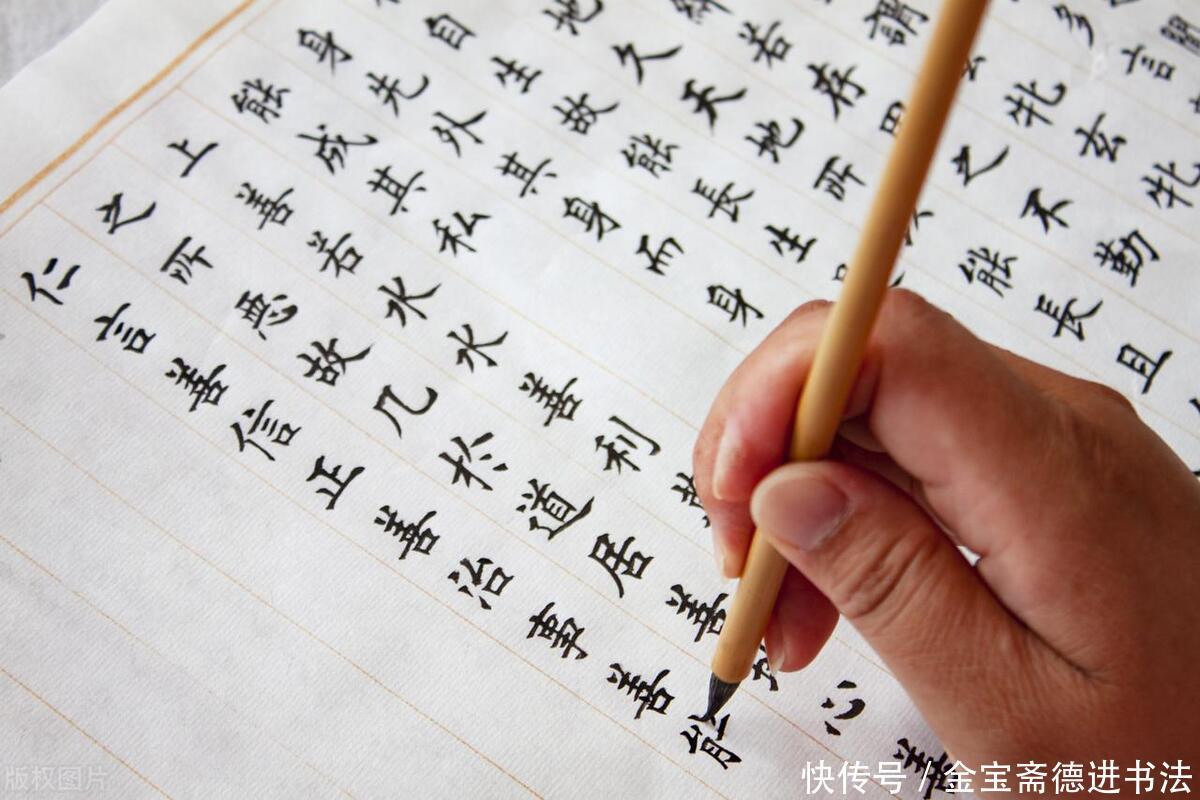 多言
謂牝玄牝
若存之不勤
地久天地所能長且
自生故能長生
身先外其身而身
能成其私
上善若水水善利
之所惡故几於道居善心善
仁言善信正善治事善能
快传号 / 金宝斋德进书法
版权图片